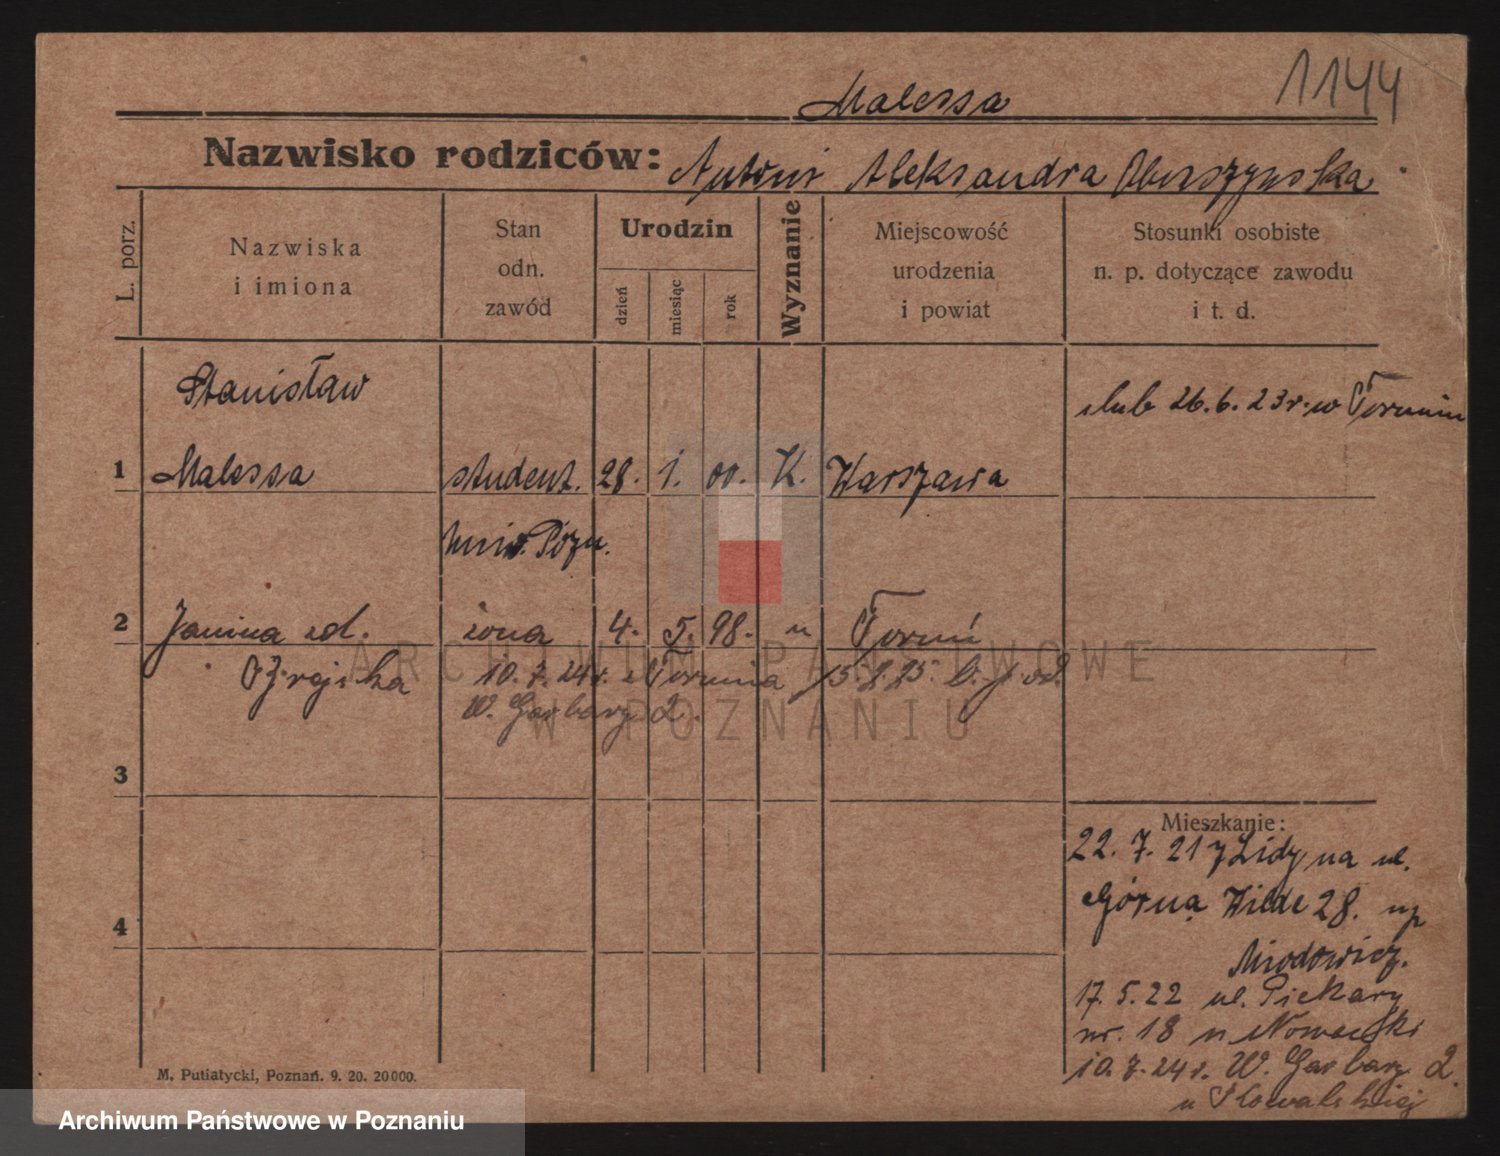 1144
Malessa
Nazwisko rodziców: Antoni Aleksandra
L. porz.
Nazwiska i imiona
Stan odn. zawód
Urodzin
dzień
miesiąc
rok
Wyznanie
Miejscowość urodzenia i powiat
Stosunki osobiste n. p. dotyczące zawodu i t. d.
Stanisław
ślub 26. 6. 23 r. w Toruniu
1 Malessa student. 28. 1. 00. K. Warszawa
Uniw. Pozn.
2 Janina zd. żona 4. 5. 98. " Toruń
10. 7. 24 r. z Torunia
W. Garbary 2.
3
4
Mieszkanie:
22. 7. 21 z Lidy na ul.
Górna Wilde 28.
Miodowicz.
17. 5. 22 ul. Piekary
nr. 18 u Nowacki
10. 7. 24 r. W. Garbary 2.
u Kowalskiej
M. Putiatycki, Poznań. 9. 20. 20000.
ARCHIWUM PAŃSTWOWE
W POZNANIU
Archiwum Państwowe w Poznaniu